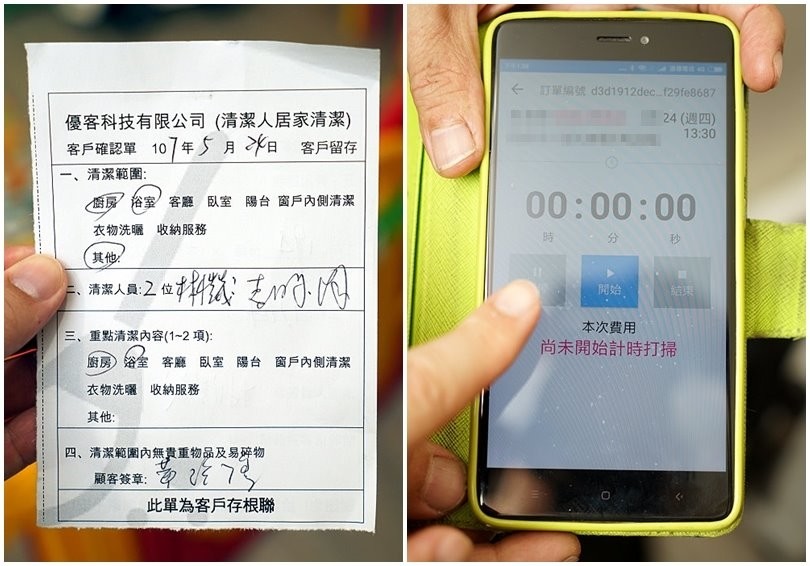 優客科技有限公司 (清潔人居家清潔)
客戶確認單 107年5月24日 客戶留存
一、清潔範圍:
廚房 浴室 客廳 臥室 陽台 窗戶內側清潔
衣物洗曬 收納服務
其他:
二、清潔人員:2位
三、重點清潔內容(1~2 項):
廚房 浴室 客廳 臥室 陽台 窗戶內側清潔
衣物洗曬 收納服務
其他:
四、清潔範圍內無貴重物品及易碎物
顧客簽章:
此單為客戶存根聯
訂單編號 d3d1912dec...f29fe8687
24 (週四)
13:30
00:00:00
時 分 秒
開始 結束
本次費用
尚未開始計時打掃